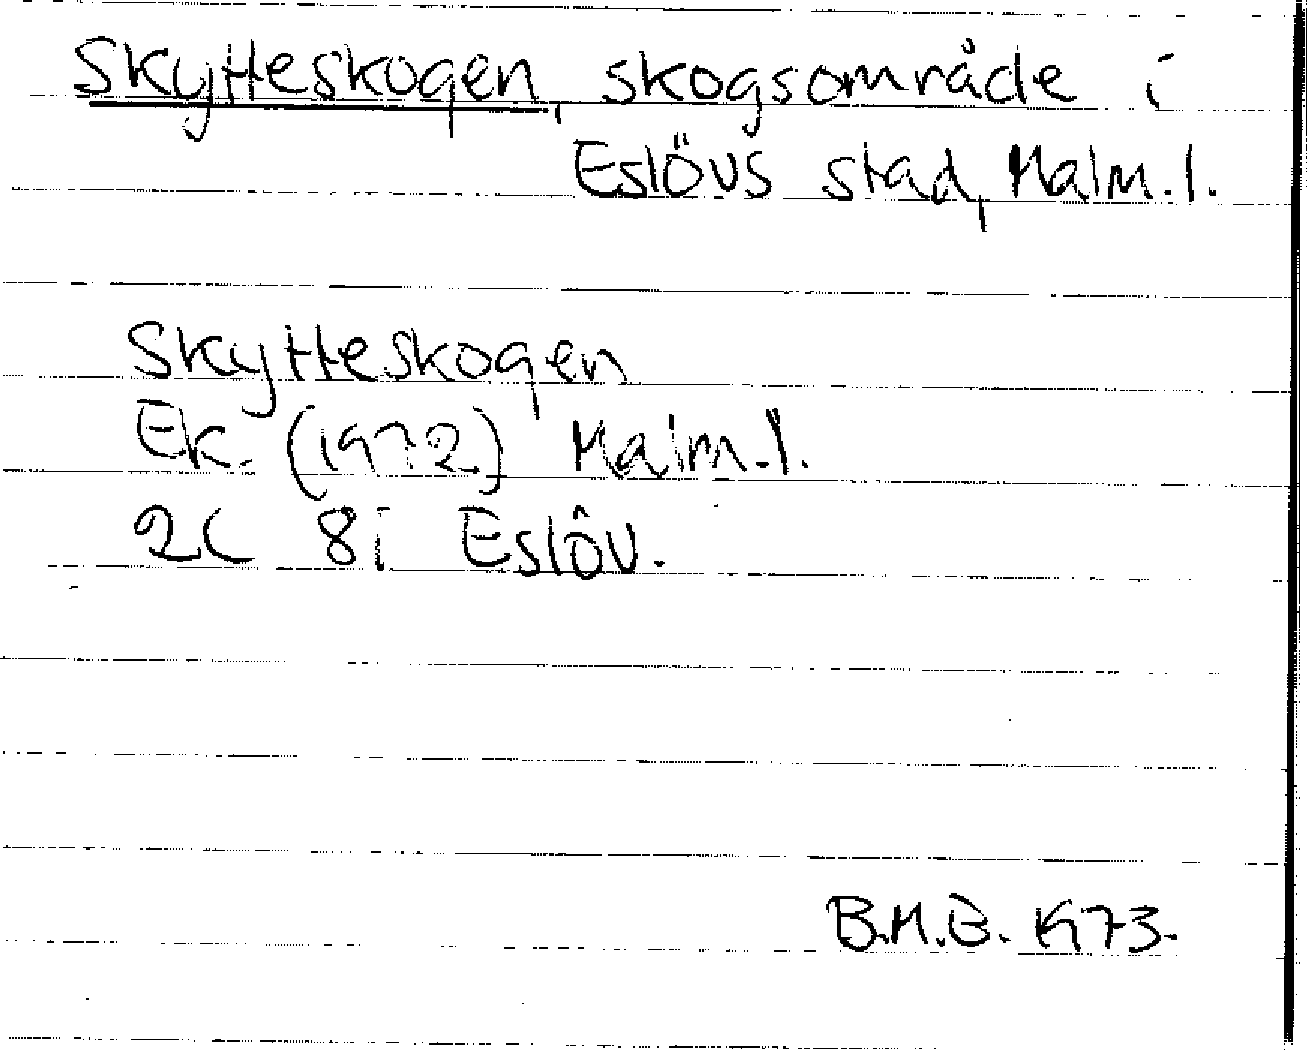 Skytteskogen, skogsområde i
Eslövs stad, Malm. l.
Skytteskogen
Ek. (1972) Malm. l.
2C 8i Eslöv.
B.M.B. 1973.